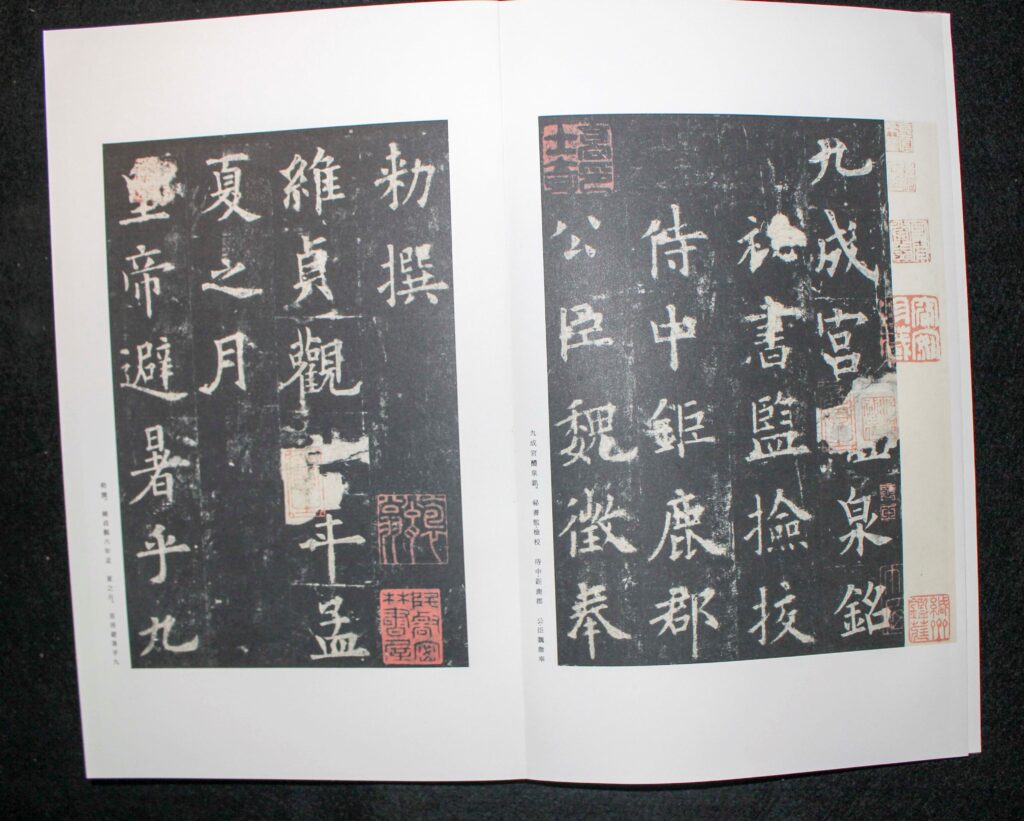 九成宮泉銘
祕書監撿挍
侍中鉅鹿郡
公臣魏徵奉
九成宮醴泉銘。 祕書監檢校 侍中鉅鹿郡 公臣魏徵奉
勅撰
維貞觀年孟
夏之月
皇帝避暑乎九
勅撰。 維貞觀六年孟 夏之月。 皇帝避暑乎九